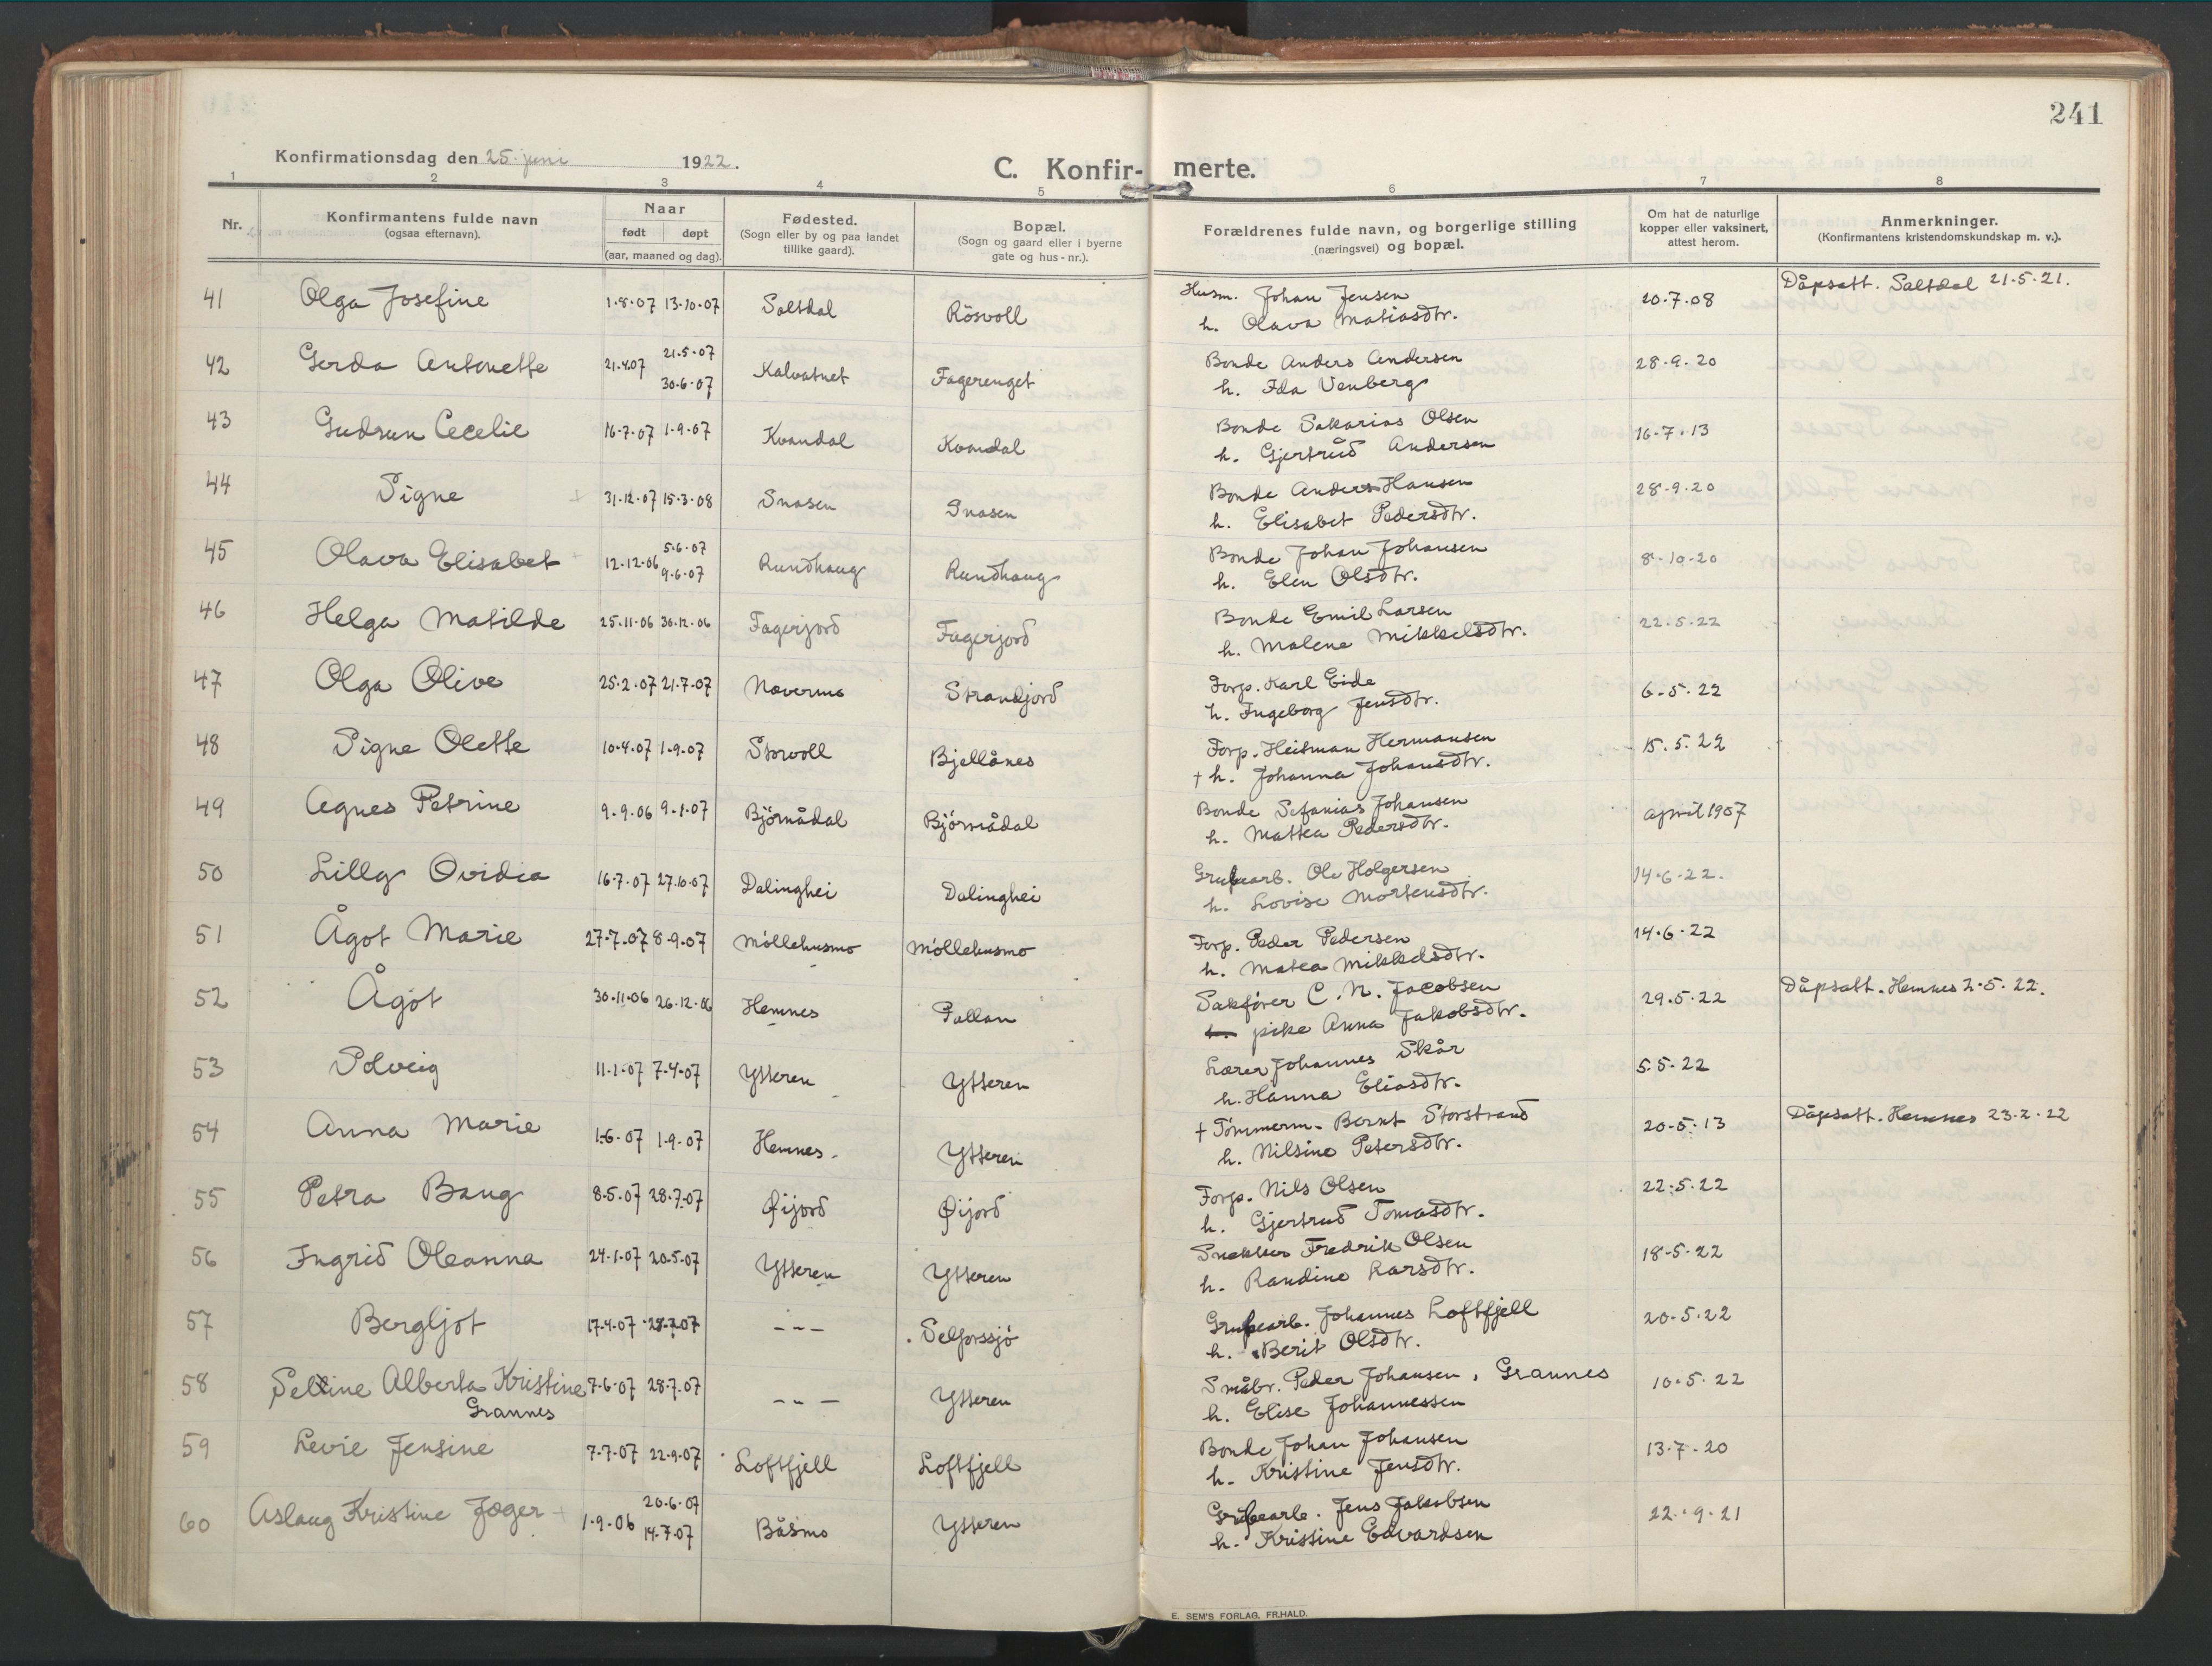 241
Konfirmationsdag den 25. juni 1922.
C. Konfir- merte.
1 2 3 4 5 6 7 8
Nr.
Konfirmantens fulde navn
(ogsaa efternavn).
Naar
født døpt
(aar, maaned og dag).
Fødested.
(Sogn eller by og paa landet
tillike gaard).
Bopæl.
(Sogn og gaard eller i byerne
gate og hus-nr.).
Forældrenes fulde navn, og borgerlige stilling
(næringsvei) og bopæl.
Om hat de naturlige
kopper eller vaksinert,
attest herom.
Anmerkninger.
(Konfirmantens kristendomskundskap m. v.).
41 Olga Josefine 1-8-07 13-10-07 Saltdal Rösvoll Husm. Johan Jensen 20-7-08 Dåpsatt. Saltdal 21-5-21.
h. Olava Matiasdtr.
42 Gerda Antonette 21.4.07 21-5-07 Kalvatnet Fagerenget Bonde Anders Andersen 28-9-20
30-6-07 h. Ida Venberg
43 Gudrun Cecelie 16-7-07 1-9-07 Kvandal Kvandal Bonde Sakarias Olsen 16-7-13
h. Gjertrud Andersen
44 Signe 31-12-07 15-3-08 Snasen Snasen Bonde Anders Hansen 28-9-20
h. Elisabet Pedersdtr.
45 Olava Elisabet 12-12-06 5-6-07 Rundhaug Rundhaug Bonde Johan Johansen 8-10-20
9-6-07 h. Elen Olsdtr.
46 Helga Matilde 25-11-06 30-12-06 Fagerjord Fagerjord Bonde Emil Larsen 22-5-22
h. Malene Mikkelsdtr.
47 Olga Olive 25-2-07 21-7-07 Nævermo Strandjord Forp. Karl Eide 6-5-22
h. Ingeborg Jensdtr.
48 Signe Olette 10-4-07 1-9-07 Storvoll Bjellånes Forp. Heitman Hermansen 15.5.22
+ h. Johanna Johansdtr.
49 Agnes Petrine 9-9-06 9-1-07 Björnådal Björnådal Bonde Sefanias Johansen april 1907
h. Mattea Pedersdtr.
50 Lilly Ovidia 16-7-07 27.10-07 Dalinghei Dalinghei Grubearb. Ole Holgersen 14-6-22.
h. Lovise Mortensdtr.
51 Ågot Marie 27-7-07 8-9-07 Möllehusmo Möllehusmo Forp. Peder Pedersen 14-6-22
h. Matea Mikkelsdtr.
52 Ågot 30-11-06 26-12-06 Hemnes Pallan Sakförer C. N. Jacobsen 29.5.22 Dåpsatt. Hemnes 2-5-22.
h. pike Anna Jakobsdtr.
53 Solveig 11-1-07 7-4-07 Ytteren Ytteren Lærer Johannes Skår 5.5-22
h. Hanna Eliasdtr.
54 Anna Marie 1-6-07 1-9-07 Hemnes. Ytteren + Tömmerm. Bernt Storstrand 20-5-13 Dåpsatt. Hemnes 23-2-22
h. Nilsine Petersdtr.
55 Petra Bang 8-5-07 28-7-07 Øijord Øijord Forp. Nils Olsen 22-5-22
h. Gjertrud Tomasdtr.
56 Ingrid Oleanna 24-1-07 20-5-07 Ytteren Ytteren Snekker Fredrik Olsen 18-5-22
h. Randine Larsdtr.
57 Bergljot 17-4-07 28-7-07 - " - Selforssjö Grubearb. Johannes Loftfjell 20-5-22
h. Berit Olsdtr.
58 Seline Alberta Kristine 7-6-07 28-7-07 - " - Ytteren Småbr. Peder Johansen, Grannes 10-5-22
Grannes h. Elise Johannessen
59 Levie Jensine 7-7-07 22-9-07 Loftfjell Loftfjell Bonde Johan Johansen 13-7-20
h. Kristine Jensdtr.
60 Aslaug Kristine Jæger 1-9-06 20-6-07 Båsmo Ytteren Grubearb. Jens Jakobsen 22-9-21
14-7-07 h. Kristine Edvardsen
E. SEM'S FORLAG, FR.HALD.